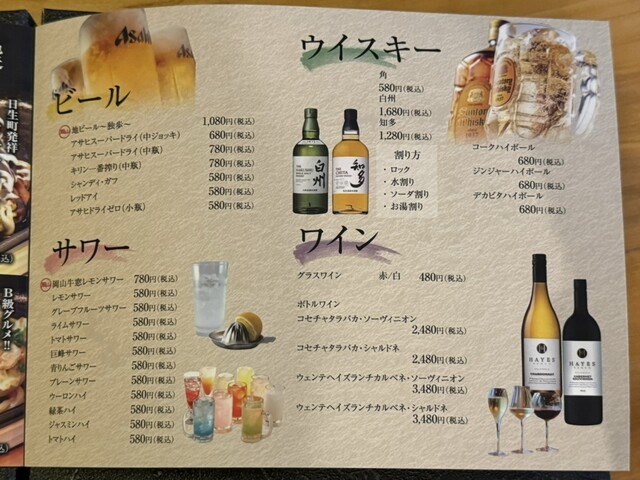 ビール
地ビール〜独歩〜 1,080円(税込)
アサヒスーパードライ(中ジョッキ) 680円(税込)
アサヒスーパードライ(中瓶) 780円(税込)
キリン一番搾り(中瓶) 780円(税込)
シャンディ・ガフ 580円(税込)
レッドアイ 580円(税込)
アサヒドライゼロ(小瓶) 580円(税込)
サワー
岡山牛窓レモンサワー 780円(税込)
レモンサワー 580円(税込)
グレープフルーツサワー 580円(税込)
ライムサワー 580円(税込)
トマトサワー 580円(税込)
巨峰サワー 580円(税込)
青りんごサワー 580円(税込)
プレーンサワー 580円(税込)
ウーロンハイ 580円(税込)
緑茶ハイ 580円(税込)
ジャスミンハイ 580円(税込)
トマトハイ 580円(税込)
ウイスキー
角
580円(税込)
白州
1,680円(税込)
知多
1,280円(税込)
割り方
・ロック
・水割り
・ソーダ割り
・お湯割り
コークハイボール
680円(税込)
ジンジャーハイボール
680円(税込)
デカビタハイボール
680円(税込)
ワイン
グラスワイン 赤/白 480円(税込)
ボトルワイン
コセチャタラパカ・ソーヴィニオン
2,480円(税込)
コセチャタラパカ・シャルドネ
2,480円(税込)
ウェンテヘイズランチカルベネ・ソーヴィニオン
3,480円(税込)
ウェンテヘイズランチカルベネ・シャルドネ
3,480円(税込)
Asahi
Asahi
白州
知多
HAYES
HAYES
日生町発祥
B級グルメ!!